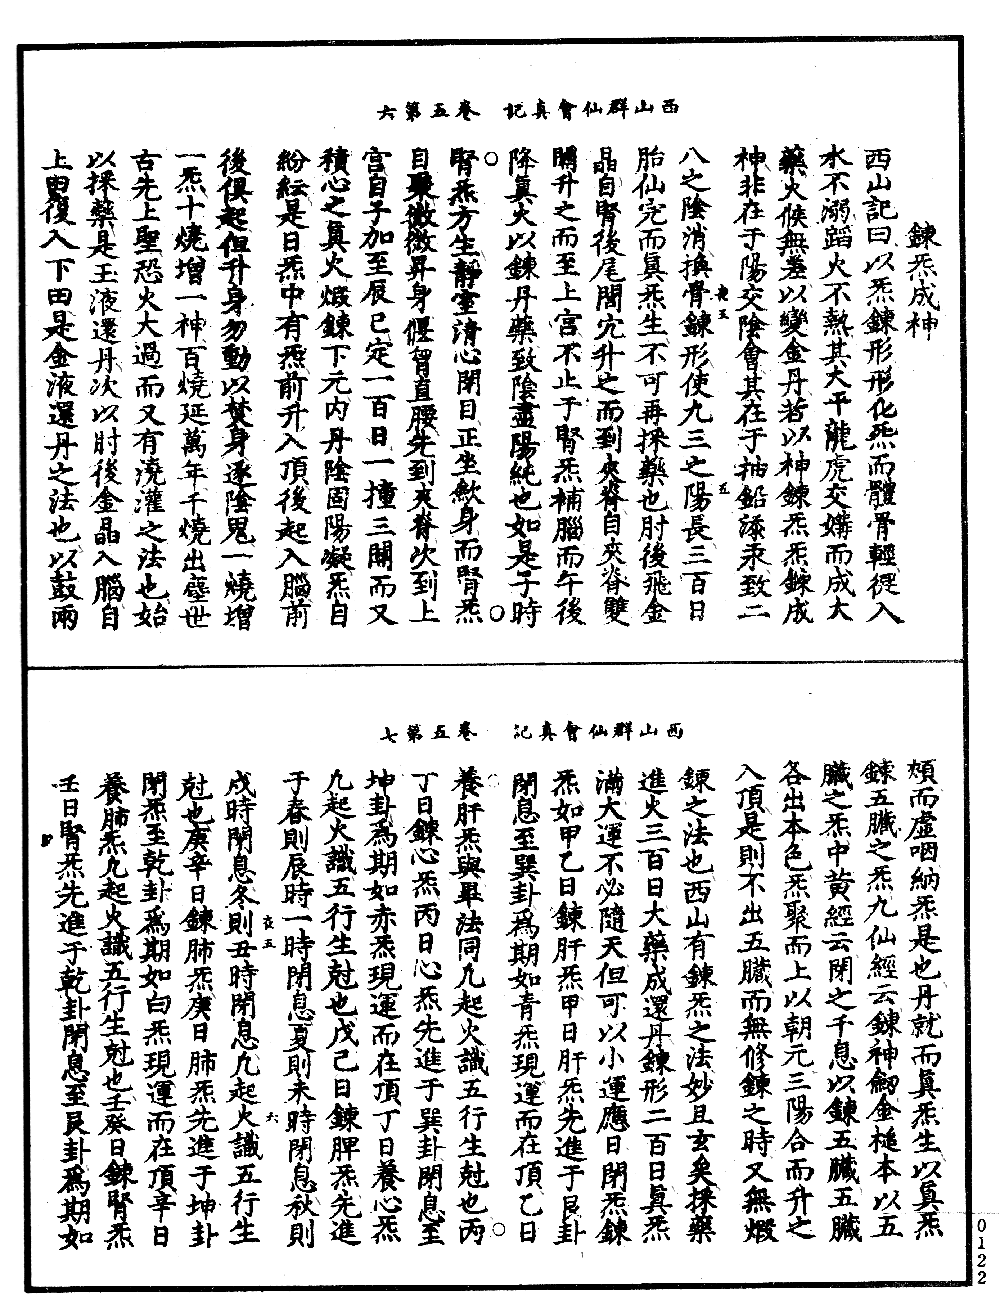 西山群仙會真記　卷五第六
鍊炁成神
西山記曰以炁鍊形形化炁而體骨輕從入
水不溺蹈火不熱其大平龍虎交媾而成大
藥火候無差以變金丹若以神鍊炁炁鍊成
神非在于陽交陰會其在于抽鉛添汞致二
八之陰消換骨鍊形使九三之陽長三百日
胎仙完而真炁生不可再採藥也肘後飛金
晶自腎後尾閭穴升之而到夾脊自夾脊雙
關升之而至上宮不止于腎炁補腦而午後
降真火以鍊丹藥致陰盡陽純也如是子時
腎炁方生靜室清心閉目正坐歛身而腎炁
自聚微微昇身偃脊直腰先到夾脊次到上
宮自子加至辰巳定一百日一撞三關而又
積心之真火煅鍊下元內丹陰固陽凝炁自
紛紜是日炁中有炁前升入頂後起入腦前
後俱起但升身勿動以焚身逐陰鬼一燒增
一炁十燒增一神百燒延萬年千燒出塵世
古先上聖恐火大過而又有澆灌之法也始
以採藥是玉液還丹次以肘後金晶入腦自
上腭復入下田是金液還丹之法也以鼓兩
西山群仙會真記　卷五第七
頰而虛咽納炁是也丹就而真炁生以真炁
鍊五臟之炁九仙經云鍊神劒金槌本以五
臟之炁中黄經云閉之千息以鍊五臟五臟
各出本色炁聚而上以朝元三陽合而升之
入頂是則不出五臟而無修鍊之時又無煅
鍊之法也西山有鍊炁之法妙且玄矣採藥
進火三百日大藥成還丹鍊形二百日真炁
滿大運不必隨天但可以小運應日閉炁鍊
炁如甲乙日鍊肝炁甲日肝炁先進于艮卦
閉息至巽卦爲期如青炁現運而在頂乙日
養肝炁與畢法同凡起火識五行生尅也丙
丁日鍊心炁丙日心炁先進于巽卦閉息至
坤卦爲期如赤炁現運而在頂丁日養心炁
凡起火識五行生尅也戊己日鍊脾炁先進
于春則辰時一時閉息夏則未時閉息秋則
戌時閉息冬則丑時閉息凡起火識五行生
尅也庚辛日鍊肺炁庚日肺炁先進于坤卦
閉炁至乾卦爲期如白炁現運而在頂辛日
養肺炁凡起火識五行生尅也壬癸日鍊腎炁
壬日腎炁先進于乾卦閉息至艮卦爲期如
0122